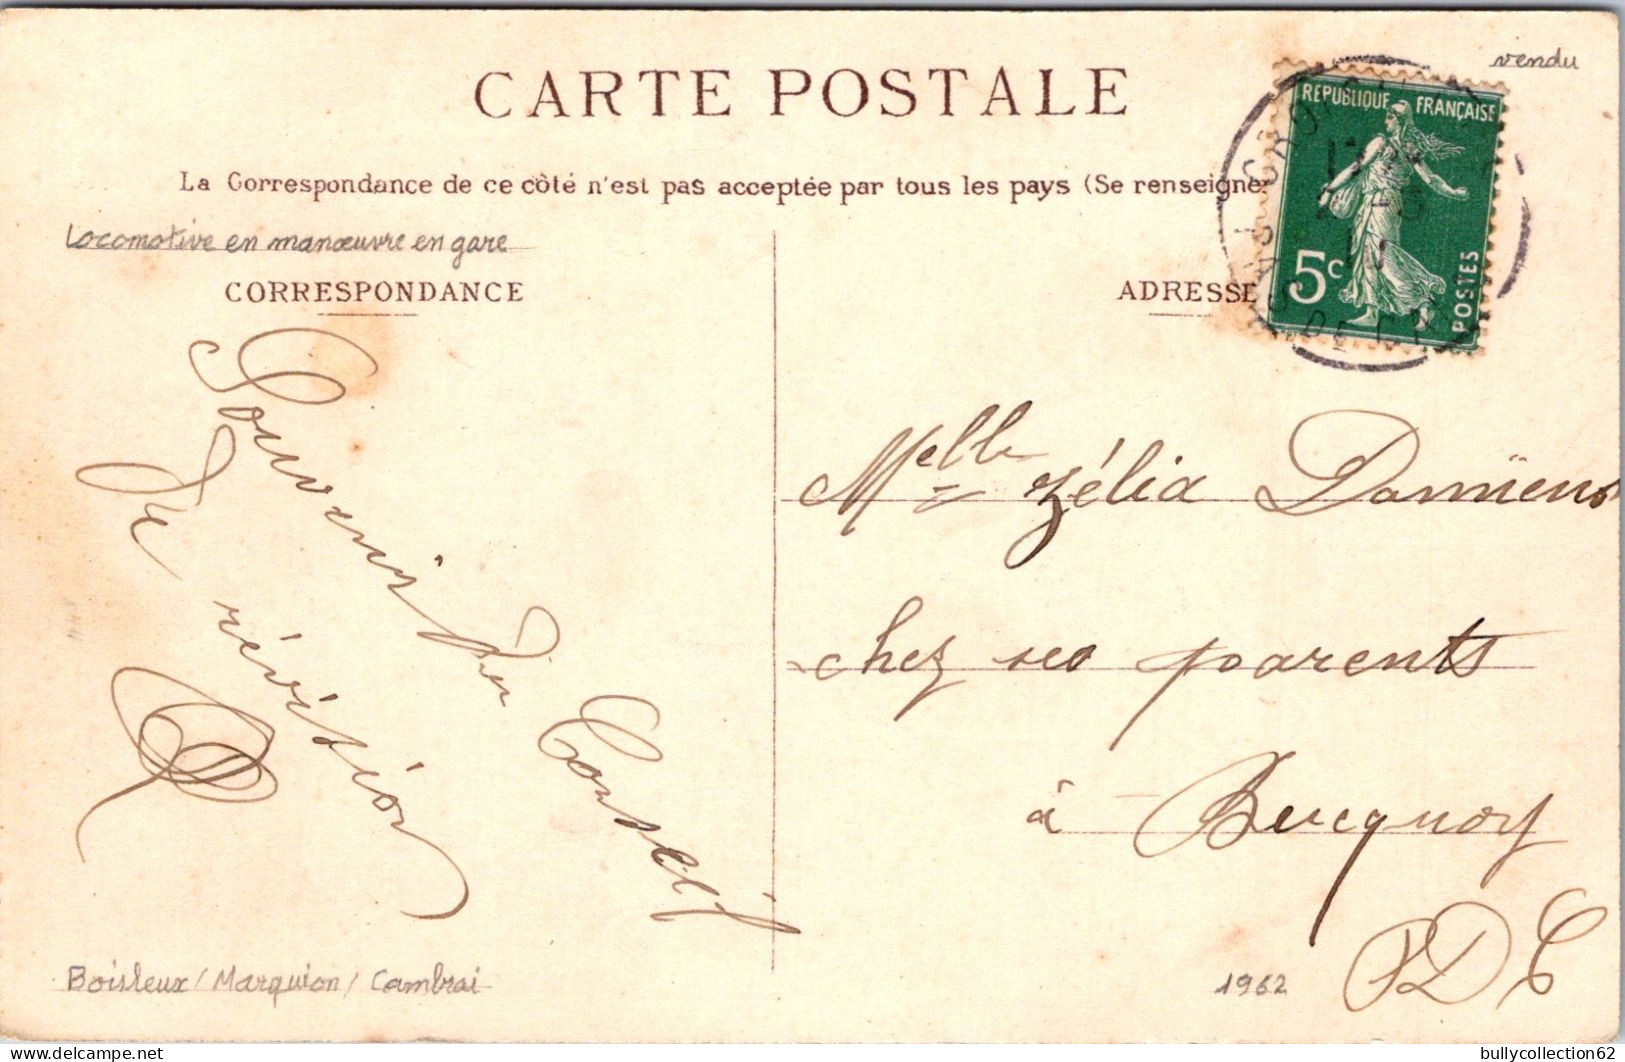 vendu
CARTE POSTALE
RÉPUBLIQUE FRANÇAISE
5c
POSTES
La Correspondance de ce côté n'est pas acceptée par tous les pays (Se renseigner
Locomotive en manœuvre en gare
CORRESPONDANCE
ADRESSE
Souvenir du Conseil
de révision
Melle Zélia Damiens
chez ses parents
à Bucquoy
PDC
Boisleux / Marquion / Cambrai
1962
bullycollection62